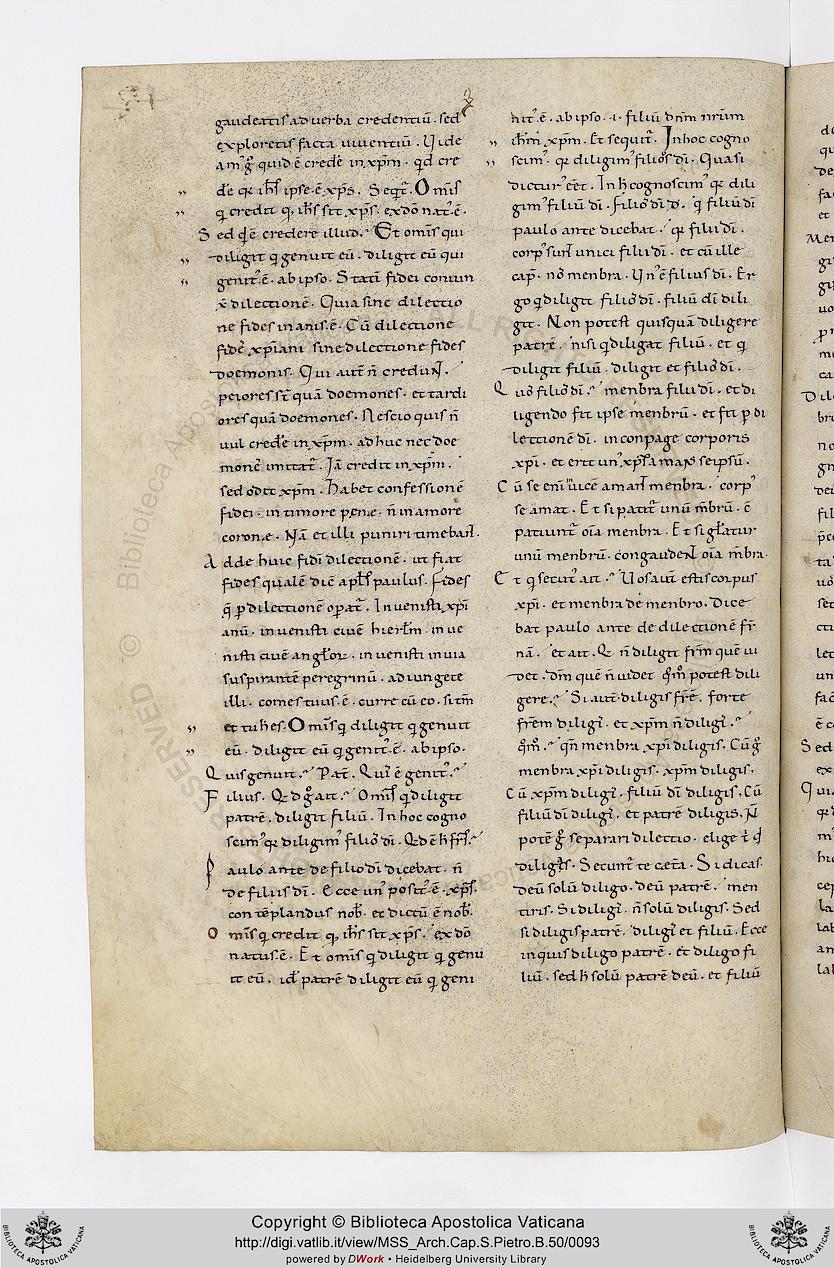 gaudeatis ad verba credentiū. sed
exploretis facta viventiū. Vide
am' g° quid ē credē in xp̄m. qd̄ cre
dē qr ih̄s ipse ē xp̄s. Seqt̄. Omis
q̄ credit q ih̄s sit xp̄s. ex dō nat' ē.
Sed qd ē credere illud. Et omis qui
diligit q genuit eū. diligit eū qui
genit' ē. ab ipso. Statī fidei coniun
x̄ dilectionē. Quia sine dilectio
ne fides inanis ē. Cū dilectione
fidēs xp̄iani sine dilectione fides
doemonis. Qui aut̄ n̄ credunt.
peiores st̄ quā doemones. et tardi
ores quā doemones. Nescio quis n̄
vul credē in xp̄m. adhuc nec doe
monē imitat̄. Iā credit in xp̄m.
sed odit xp̄m. Habet confessionē
fidei. in timore penæ. n̄ in amore
coronæ. Nā et illi puniri timebant.
Adde huic fidi dilectionē. ut fiat
fides qualē dic̄ apl̄s paulus. Fides
q̄ p dilectionē opat̄. Invenisti xp̄i
anū. invenisti civē hierl̄m. inve
nisti civē anglo℞. invenisti in via
suspirantē peregrinū. adiungete
illi. comes tuus ē. curre cū eo. si tm̄
et tu h es. Omis q diligit q genuit
eū. diligit eū q genit' ē. ab ipso.
Quis genuit. Pat̄. Quis ē genit'.
Filius. Qd g° ait. Omis q diligit
patrē. diligit filiū. In hoc cogno
scim' qr diligim' filios dī. Qd ē h fr̄s.
Paulo ante de filio dī dicebat. n̄
de filiis dī. Ecce un' posit' ē xp̄s.
contēplandus nob̄. et dictū ē nob̄.
Omis q credit q ih̄s sit xp̄s. ex dō
natus ē. Et omis q diligit q genu
it eū. id patrē diligit eū q geni
nit' ē. ab ipso. i. filiū dn̄m nr̄um
ih̄m xp̄m. Et sequit̄. In hoc cogno
scim' qr diligim' filios dī. Quasi
dictur' eēt. In h cognoscim' qr dili
gim' filiū dī. Filios dī d. q filiū dī
paulo ante dicebat. qr filii dī.
corp' sunt unici filii dī. et cū ille
cap̄. nos menbra. Un' ē filius dī. Er
go q diligit filios dī. filiū dī dili
git. Non potest quisquā diligere
patrē. nisi q diligat filiū. et q
diligit filiū. diligit et filios dī.
Quos filios dī. menbra filii dī. et di
ligendo fit ipse menbrū. et fit p di
lectionē dī. in conpage corporis
xp̄i. et erit un' xp̄s amans seipsū.
Cū se enī invicē amant menbra. corp'
se amat. Et si patit̄ unū mbrū. c̄
patiunt̄ oīa menbra. Et si gl̄atur
unū menbrū. congaudent oīa mbra.
Et q secut' ait. Vos aut̄ estis corpus
xp̄i. et menbra de menbro. Dice
bat paulo ante de dilectionē fr̄
nā. et ait. Qr n̄ diligit fr̄m quē vi
det. dm̄ quē n̄ videt qm̄ potest dili
gere. Si aut̄ diligis frē. forte
frēm diligi'. et xp̄m n̄ diligi'.
qm̄. qn̄ menbra xp̄i diligis. Cū g°
menbra xp̄i diligis. xp̄m diligis.
Cū xp̄m diligi'. filiū dī diligis. Cū
filiū dī diligi'. et patrē diligis. N̄
potē g° separari dilectio. elige t' qd
diligas. Secunt̄ te cet̄a. Si dicas.
deū solū diligo. deū patrē. men
tiris. Si diligi'. n̄ solū diligis. Sed
si diligis patrē. diligi' et filiū. Ecce
inquis diligo patrē. et diligo fi
liū. sed h solū patrē deū. et filiū
Copyright © Biblioteca Apostolica Vaticana
http://digi.vatlib.it/view/MSS_Arch.Cap.S.Pietro.B.50/0093
powered by DWork • Heidelberg University Library